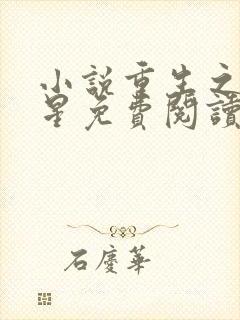 小說重生之
星免費閱讀
石慶華